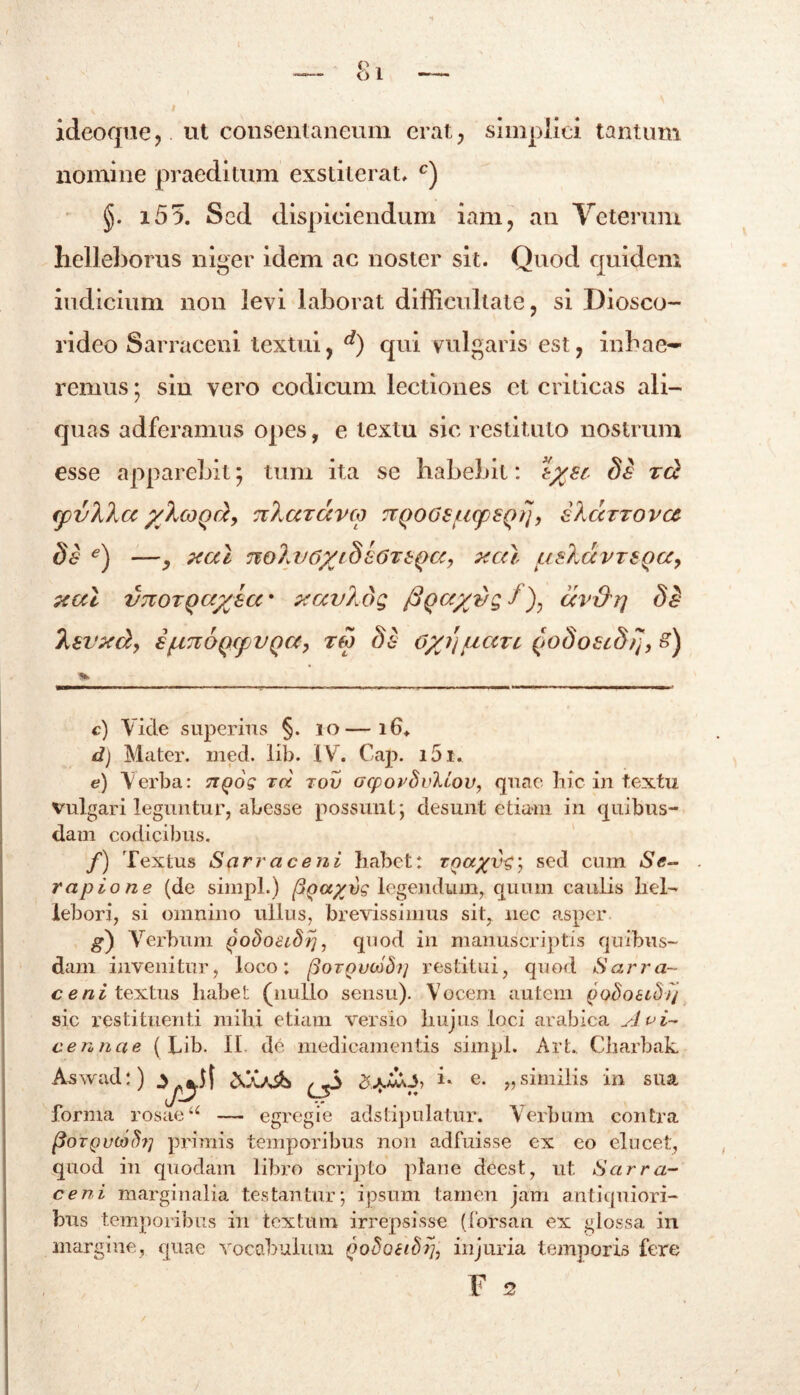 — 81 —
ideoque, ut consentaneum erat, simplici tantum
nomine praeditum exstiterat. c)
§. 155. Sed dispiciendum iam, an Veterum
helleborus niger idem ac noster sit. Quod quidem
iudicium non levi laborat difficultate, si Diosco-
rideo Sarraceni textui, d) qui vulgaris est, inhae-
remus; sin vero codicum lectiones et criticas ali-
quas adferamus opes, e textu sic restituto nostrum
esse apparebit; tum ita se habebit: ἔχει δὲ τὰ
φύλλα χλωρὰ, πλατάνῳ προσεμφερῆ, ἐλάττονα
δὲ e) —, καὶ πολυσχιδέστερα, καὶ μελάντερα,
καὶ ὑποτραχέα· καυλὸς βραχὺς f), ἄνθη δὲ
λευκὰ, ἐμπόρφυρα, τῷ δὲ σχήματι ῥοδοειδῆ, g)
c) Vide superius §. 10 — 16.
d) Mater. med. lib. IV. Cap. 151.
e) Verba: πρὸς τὰ τοῦ σφονδυλίου, quae hic in textu
vulgari leguntur, abesse possunt; desunt etiam in quibus-
dam codicibus.
f) Textus Sarraceni habet: τραχὺς; sed cum Se-
rapione (de simpl.) βραχὺς legendum, quum caulis hel-
lebori, si omnino ullus, brevissimus sit, nec asper.
g) Verbum ῥοδοειδῆ, quod in manuscriptis quibus-
dam invenitur, loco: βοτρυώδη restitui, quod Sarra-
ceni textus habet (nullo sensu). Vocem autem ῥοδοειδῆ
sic restituenti mihi etiam versio hujus loci arabica Avi-
cennae (Lib. II. de medicamentis simpl. Art. Charbak
Aswad:) i. e. „similis in sua
forma rosae“ — egregie adstipulatur. Verbum contra
βοτρυώδη primis temporibus non adfuisse ex eo elucet,
quod in quodam libro scripto plane deest, ut Sarra-
ceni marginalia testantur; ipsum tamen jam antiquiori-
bus temporibus in textum irrepsisse (forsan ex glossa in
margine, quae vocabulum ῥοδοειδῆ, injuria temporis fere
F 2